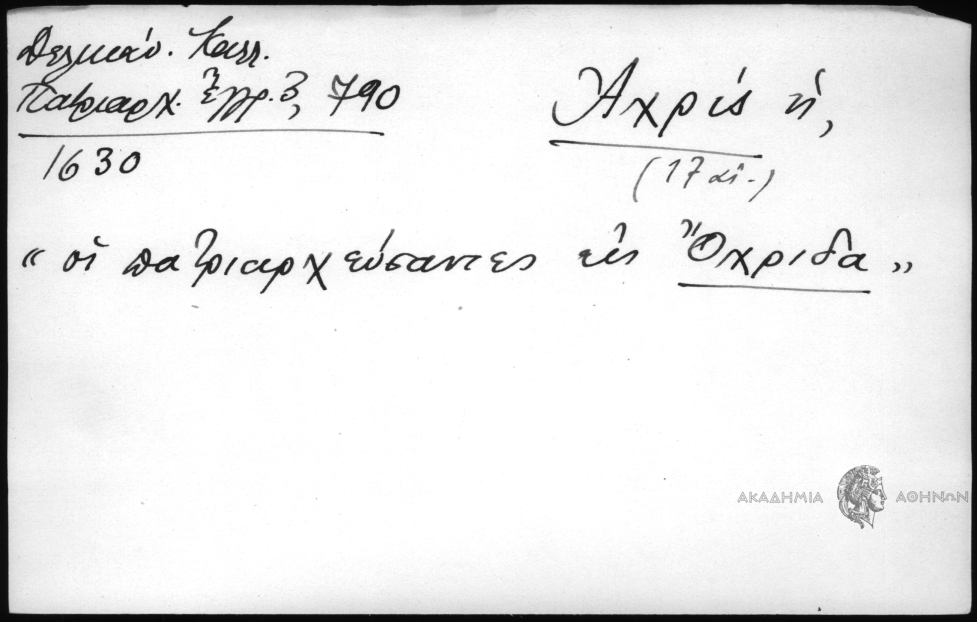 Δελικάν. Καλλ.
Πατριαρχ. Ἔγγρ. 3, 790
1630
Ἀχρίς ἡ,
(17 αἰ.)
« οἱ πατριαρχεύσαντες εἰς Ὄχριδα »
ΑΚΑΔΗΜΙΑ ΑΘΗΝΩΝ